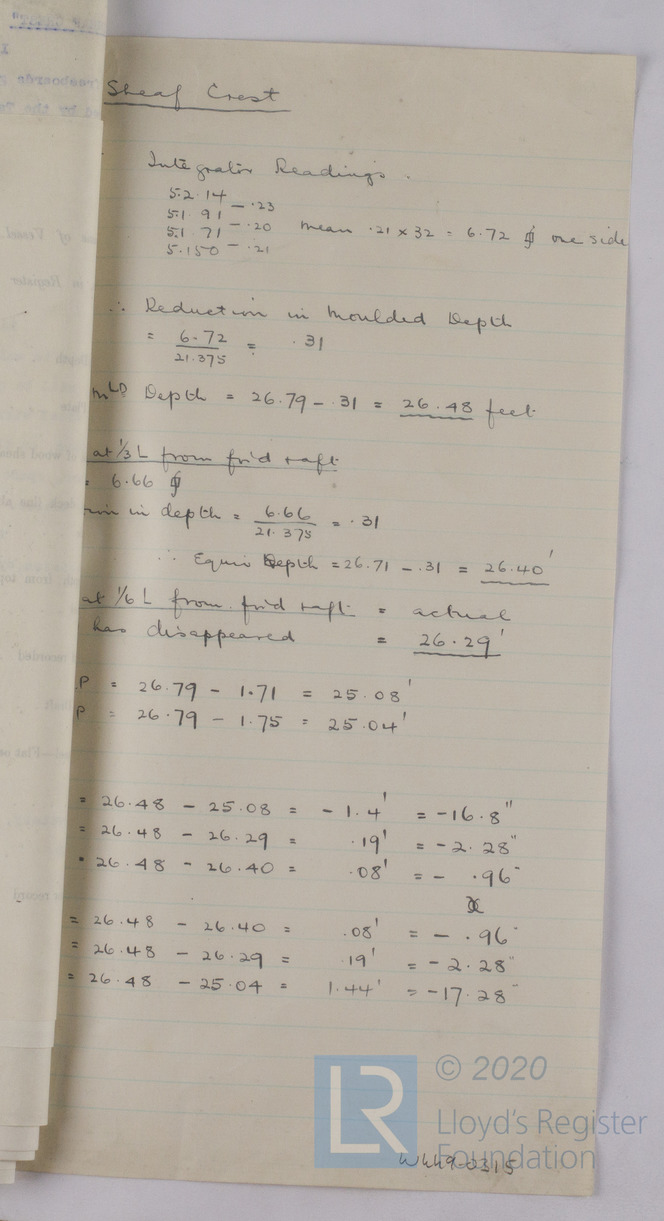 Sheaf Crest
Integrator Readings.
5.2.14
5.1.91 - .23
5.1.71 - .20 mean .21 x 32 = 6.72 ф one side
5.150 - .21
∴ Reduction in Moulded Depth
= 6.72 / 21.375 = .31
mLD Depth = 26.79 - .31 = 26.48 feet
at 1/3 L from frd & aft
= 6.66 ф
in depth = 6.66 / 21.375 = .31
∴ Equiv Depth = 26.71 - .31 = 26.40'
at 1/6 L from frd & aft = actual
has disappeared = 26.29'
P = 26.79 - 1.71 = 25.08'
P = 26.79 - 1.75 = 25.04'
= 26.48 - 25.08 = - 1.4' = -16.8"
= 26.48 - 26.29 = .19' = -2.28"
= 26.48 - 26.40 = .08' = - .96"
= 26.48 - 26.40 = .08' = - .96"
= 26.48 - 26.29 = .19' = -2.28"
= 26.48 - 25.04 = 1.44' = -17.28"
LR
© 2020
Lloyd's Register
Foundation
W449-0315